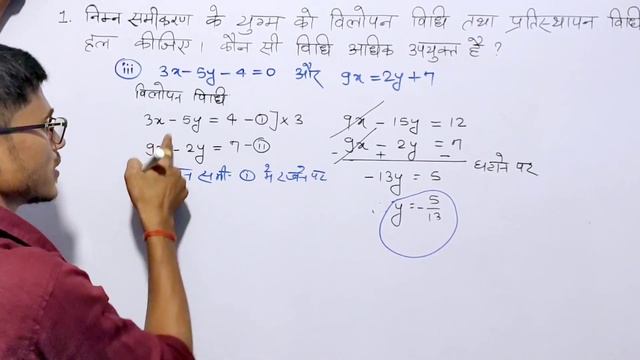 1. निम्न समीकरण के युग्म को विलोपन विधि तथा प्रतिस्थापन विधि
हल कीजिए। कौन सी विधि अधिक उपयुक्त है?
(iii) 3x-5y-4=0 और 9x=2y+7
विलोपन विधि
3x-5y = 4 -(i)] ×3
9x - 2y = 7 -(ii)
समी- (i) में रखने पर
9x - 15y = 12
9x - 2y = 7
- + -
घटाने पर
-13y = 5
∴ y = -5/13